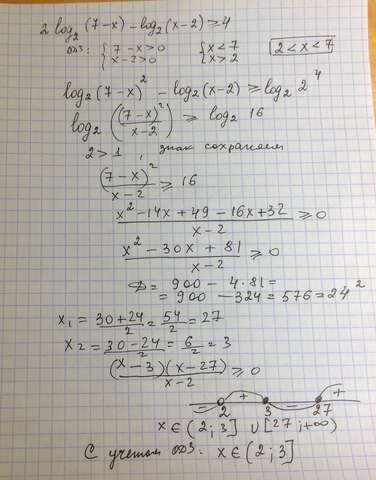 2 log₂(7-x) - log₂(x-2) ≥ 4
ОДЗ: { 7-x>0 { x<7 2<x<7
{ x-2>0 { x>2
log₂(7-x)² - log₂(x-2) ≥ log₂ 2⁴
log₂((7-x)²/(x-2)) ≥ log₂ 16
2>1, знак сохраняем
(7-x)²/(x-2) ≥ 16
(x²-14x+49-16x+32)/(x-2) ≥ 0
(x²-30x+81)/(x-2) ≥ 0
D = 900 - 4·81 =
= 900 - 324 = 576 = 24²
x₁ = (30+24)/2 = 54/2 = 27
x₂ = (30-24)/2 = 6/2 = 3
(x-3)(x-27)/(x-2) ≥ 0
- + - +
2 3 27
x ∈ (2;3] ∪ [27;+∞)
С учетом ОДЗ: x ∈ (2;3]